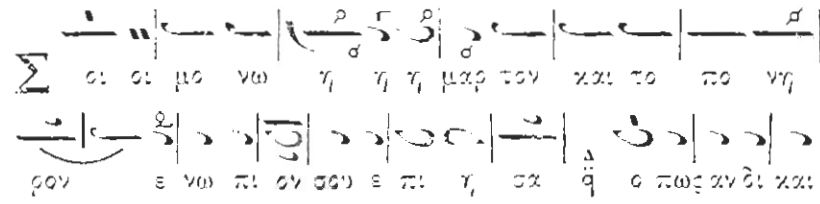 Σ οι οι μο νω η η η μαρ τον και το πο νη
ρον ε νω πι ον σου ε πι η σα q̈ ο πως αν δι και